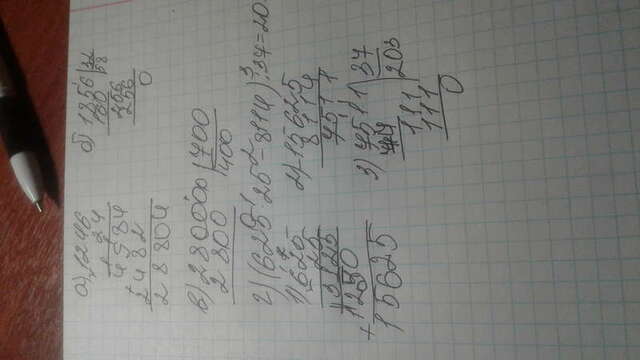 а) 1246
24
4984
2482
28804
б) 1856 | 32
160 | 58
256
256
0
в) 280000 | 700
2800 | 400
г) (625 · 25 - 8114) : 37 = 20
1) 625
25
3125
1250
+
15625
2) 15625
8114
7511
3) 7511 | 37
74 | 203
111
111
0